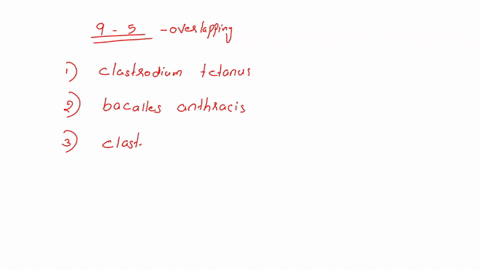 9 - 5 - overlapping
1) clastrodium tctanus
2) bacalles anthracis
3) clast.